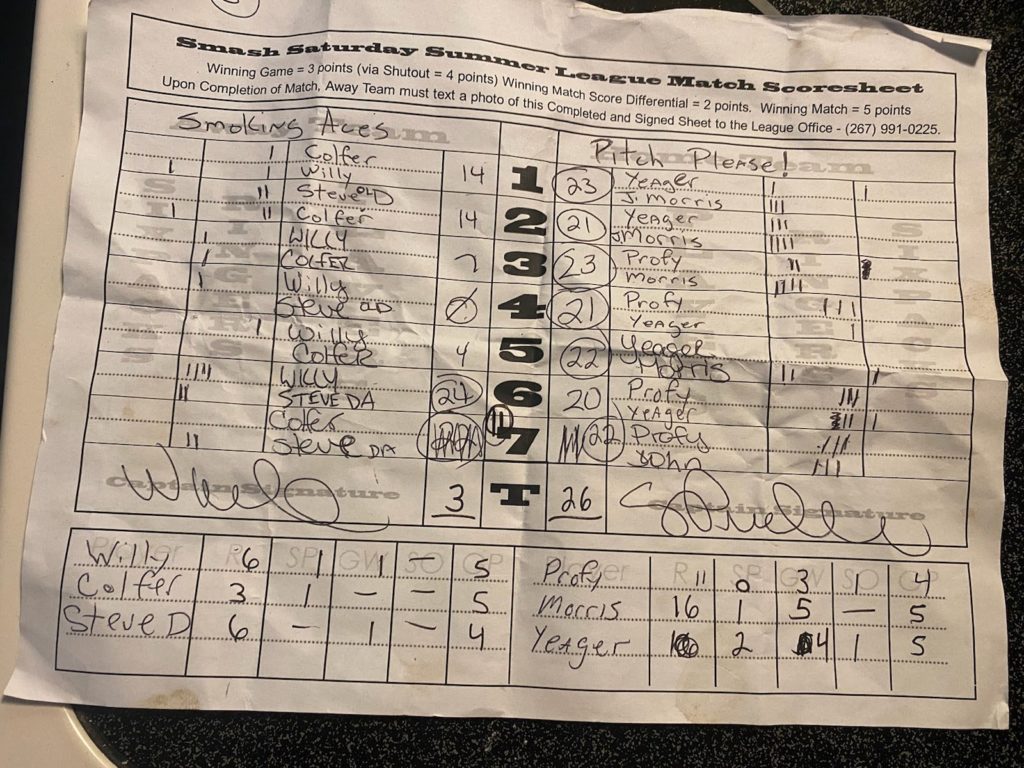 Smash Saturday Summer League Match Scoresheet
Winning Game = 3 points (via Shutout = 4 points) Winning Match Score Differential = 2 points. Winning Match = 5 points
Upon Completion of Match, Away Team must text a photo of this Completed and Signed Sheet to the League Office - (267) 991-0225.
Smoking Aces Pitch Please!
Colfer 14 1 23 Yeager
Willy J. Morris
Steve OLD 14 2 21 Yeager
Colfer J Morris
WILLY 7 3 23 Profy
COLFER Morris
Willy 4 21 Profy
Steve OLD Yeager
Willy 4 5 22 Yeager
Colfer Morris
WILLY 24 6 20 Profy
STEVE DA Yeager
Colfer 11 7 22 Profy
Steve DA John
Captain Signature 3 T 26 Captain Signature
Player R SP GW SO GP Player R SP GW SO GP
Willy 6 1 1 — 5 Profy 11 0 3 1 4
Colfer 3 1 — — 5 Morris 16 1 5 — 5
Steve D 6 — 1 — 4 Yeager 2 4 1 5